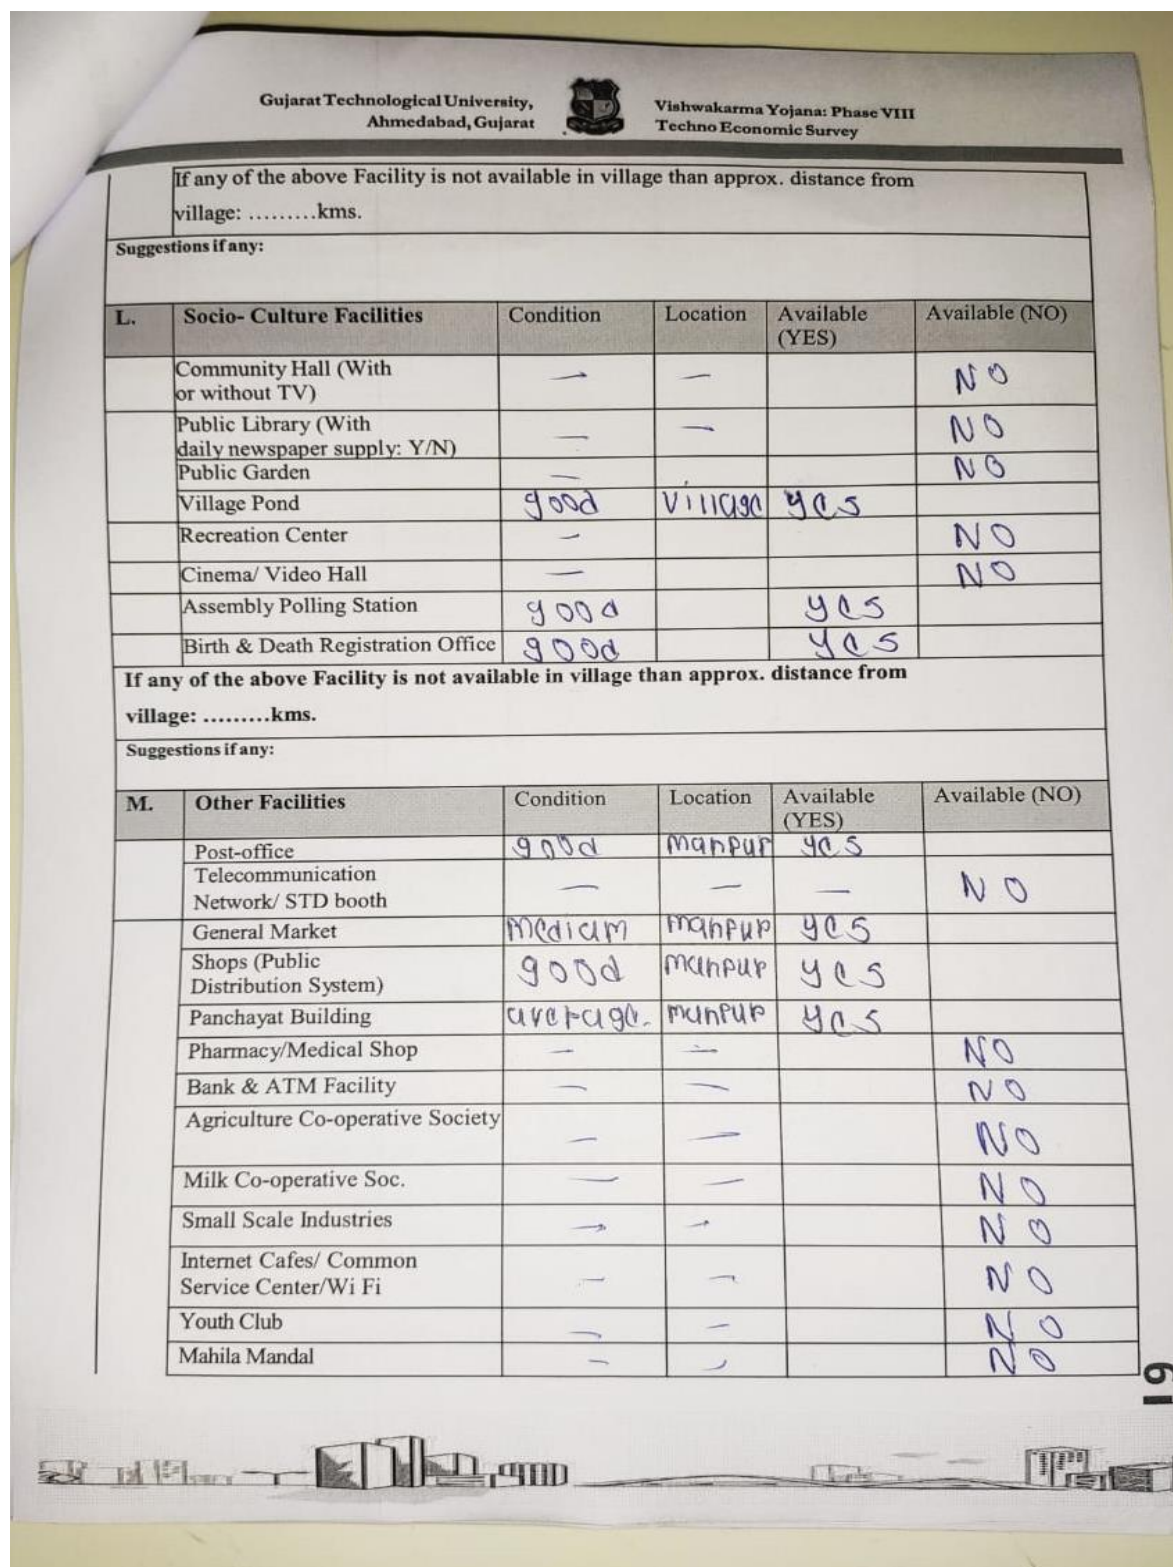 Gujarat Technological University,
Ahmedabad, Gujarat
Vishwakarma Yojana: Phase VIII
Techno Economic Survey
If any of the above Facility is not available in village than approx. distance from
village: .........kms.
Suggestions if any:
L. Socio- Culture Facilities Condition Location Available (YES) Available (NO)
Community Hall (With
or without TV) — — NO
Public Library (With
daily newspaper supply: Y/N) — — NO
Public Garden — NO
Village Pond good village yes
Recreation Center — NO
Cinema/ Video Hall — NO
Assembly Polling Station good yes
Birth & Death Registration Office good yes
If any of the above Facility is not available in village than approx. distance from
village: .........kms.
Suggestions if any:
M. Other Facilities Condition Location Available (YES) Available (NO)
Post-office good manpur yes
Telecommunication
Network/ STD booth — — — NO
General Market medium manpur yes
Shops (Public
Distribution System) good manpur yes
Panchayat Building average. manpur yes
Pharmacy/Medical Shop — — NO
Bank & ATM Facility — — NO
Agriculture Co-operative Society — — NO
Milk Co-operative Soc. — — NO
Small Scale Industries — — NO
Internet Cafes/ Common
Service Center/Wi Fi — — NO
Youth Club — — NO
Mahila Mandal — — NO
19